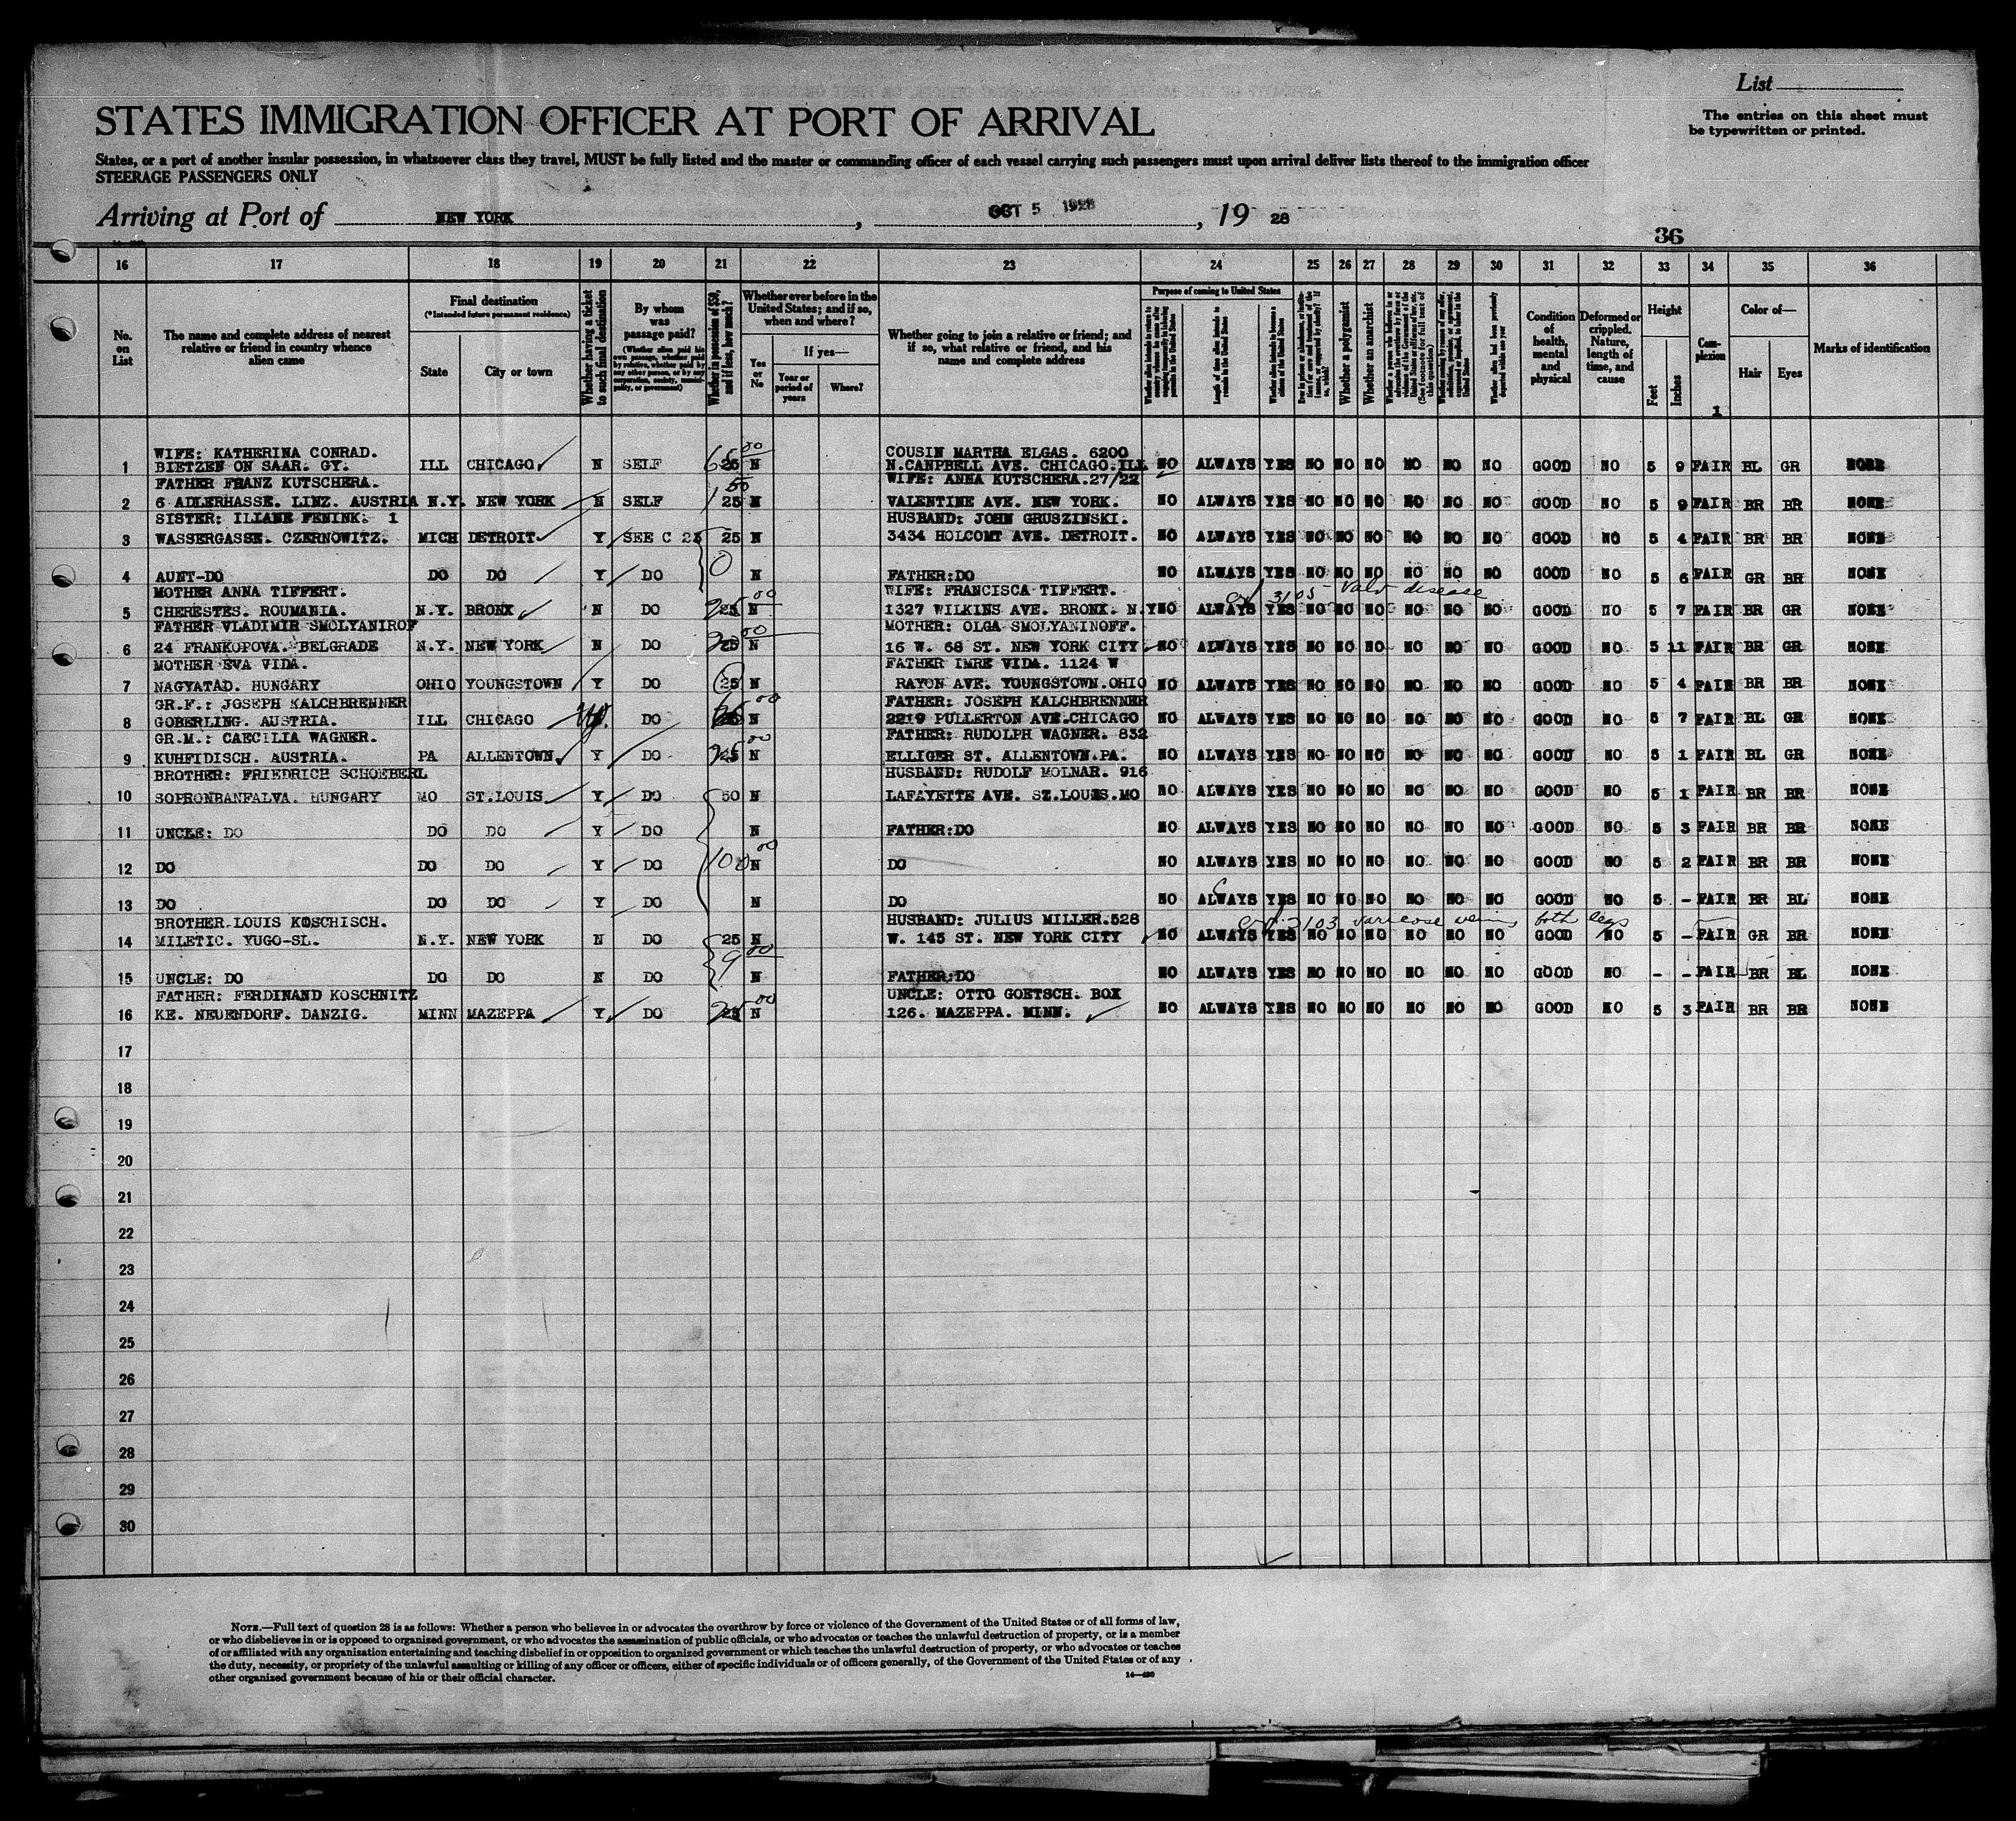 List
The entries on this sheet must
be typewritten or printed.
STATES IMMIGRATION OFFICER AT PORT OF ARRIVAL
States, or a port of another insular possession, in whatsoever class they travel, MUST be fully listed and the master or commanding officer of each vessel carrying such passengers must upon arrival deliver lists thereof to the immigration officer
STEERAGE PASSENGERS ONLY
Arriving at Port of NEW YORK, OCT 5 1928, 19 28
36
16 17 18 19 20 21 22 23 24 25 26 27 28 29 30 31 32 33 34 35 36
No. on List
The name and complete address of nearest relative or friend in country whence alien came
Final destination
(*Intended future permanent residence)
State
City or town
Whether having a ticket to such final destination
By whom was passage paid?
(Whether alien paid his own passage, whether paid by relative, whether paid by any other person, or by any corporation, society, municipality, or government)
Whether in possession of $50, and if less, how much?
Whether ever before in the United States; and if so, when and where?
Yes or No
If yes—
Year or period of years
Where?
Whether going to join a relative or friend; and if so, what relative or friend, and his name and complete address
Purpose of coming to United States
Length of time alien intends to remain in the United States
Whether alien intends to become a citizen of the United States
Whether a polygamist
Whether an anarchist
Whether alien had been previously deported within one year
Condition of health, mental and physical
Deformed or crippled. Nature, length of time, and cause
Height
Feet
Inches
Complexion
Color of—
Hair
Eyes
Marks of identification
WIFE: KATHERINA CONRAD. COUSIN MARTHA ELGAS. 6200
1 BIETZEN ON SAAR. GY. ILL CHICAGO N SELF 25 N N.CANPBELL AVE. CHICAGO.ILL NO ALWAYS YES NO NO NO NO NO NO GOOD NO 5 9 FAIR BL GR NONE
FATHER FRANZ KUTSCHERA. WIFE: ANNA KUTSCHERA.27/22
2 6 ADLERHASSE. LINZ. AUSTRIA N.Y. NEW YORK N SELF 25 N VALENTINE AVE. NEW YORK. NO ALWAYS YES NO NO NO NO NO NO GOOD NO 5 9 FAIR BR BR NONE
SISTER: ILIANE FENINK. 1 HUSBAND: JOHN GRUSZINSKI.
3 WASSERGASSE. CZERNOWITZ. MICH DETROIT Y SEE C 23 25 N 3434 HOLCOMT AVE. DETROIT. NO ALWAYS YES NO NO NO NO NO NO GOOD NO 5 4 FAIR BR BR NONE
4 AUNT-DO DO DO Y DO 0 N FATHER:DO NO ALWAYS YES NO NO NO NO NO NO GOOD NO 5 6 FAIR GR BR NONE
MOTHER ANNA TIFFERT. WIFE: FRANCISCA TIFFERT. 3105 - Valv disease
5 CHERESTES. ROUMANIA. N.Y. BRONX N DO 25 N 1327 WILKINS AVE. BRONX. N.Y NO ALWAYS YES NO NO NO NO NO NO GOOD NO 5 7 FAIR BR GR NONE
FATHER VLADIMIR SMOLYANIROF MOTHER: OLGA SMOLYANINOFF.
6 24 FRANKOPOVA. BELGRADE N.Y. NEW YORK N DO 25 N 16 W. 68 ST. NEW YORK CITY NO ALWAYS YES NO NO NO NO NO NO GOOD NO 5 11 FAIR BR GR NONE
MOTHER EVA VIDA. FATHER IMRE VIDA. 1124 W
7 NAGYATAD. HUNGARY OHIO YOUNGSTOWN Y DO 25 N RAYON AVE. YOUNGSTOWN.OHIO NO ALWAYS YES NO NO NO NO NO NO GOOD NO 5 4 FAIR BR BR NONE
GR.F.: JOSEPH KALCHBRENNER FATHER: JOSEPH KALCHBRENNER
8 GOBERLING. AUSTRIA. ILL CHICAGO DO N 2219 PULLERTON AVE.CHICAGO NO ALWAYS YES NO NO NO NO NO NO GOOD NO 5 7 FAIR BL GR NONE
GR.M.: CAECILIA WAGNER. FATHER: RUDOLPH WAGNER. 832
9 KUHFIDISCH. AUSTRIA. PA ALLENTOWN. Y DO 25 N ELLIGER ST. ALLENTOWN.PA. NO ALWAYS YES NO NO NO NO NO NO GOOD NO 5 1 FAIR BL GR NONE
BROTHER: FRIEDRICH SCHOEBERL HUSBAND: RUDOLF MOLNAR. 916
10 SOPRONBANFALVA. HUNGARY MO ST.LOUIS Y DO 50 N LAFAYETTE AVE. SZ.LOUIS.MO NO ALWAYS YES NO NO NO NO NO NO GOOD NO 5 1 FAIR BR BR NONE
11 UNCLE: DO DO DO Y DO N FATHER:DO NO ALWAYS YES NO NO NO NO NO NO GOOD NO 5 3 FAIR BR BR NONE
12 DO DO DO Y DO 100 00 N DO NO ALWAYS YES NO NO NO NO NO NO GOOD NO 5 2 FAIR BR BR NONE
13 DO DO DO Y DO N DO NO ALWAYS YES NO NO NO NO NO NO GOOD NO 5 - FAIR BR BL NONE
BROTHER.LOUIS KOSCHISCH. HUSBAND: JULIUS MILLER.528 3103 varicose veins both legs
14 MILETIC. YUGO-SL. N.Y. NEW YORK N DO 25 N W. 145 ST. NEW YORK CITY NO ALWAYS YES NO NO NO NO NO NO GOOD NO 5 - FAIR GR BR NONE
15 UNCLE: DO DO DO N DO 9 00 N FATHER:DO NO ALWAYS YES NO NO NO NO NO NO GOOD NO - - FAIR BR BL NONE
FATHER: FERDINAND KOSCHNITZ UNCLE: OTTO GOETSCH. BOX
16 KE. NEUENDORF. DANZIG. MINN MAZEPPA Y DO 25 N 126. MAZEPPA. MINN. NO ALWAYS YES NO NO NO NO NO NO GOOD NO 5 3 FAIR BR BR NONE
17
18
19
20
21
22
23
24
25
26
27
28
29
30
NOTE.—Full text of question 28 is as follows: Whether a person who believes in or advocates the overthrow by force or violence of the Government of the United States or of all forms of law,
or who disbelieves in or is opposed to organized government, or who advocates the assassination of public officials, or who advocates or teaches the unlawful destruction of property, or is a member
of or affiliated with any organization entertaining and teaching disbelief in or opposition to organized government or which teaches the unlawful destruction of property, or who advocates or teaches
the duty, necessity, or propriety of the unlawful assaulting or killing of any officer or officers, either of specific individuals or of officers generally, of the Government of the United States or of any
other organized government because of his or their official character.
14—480